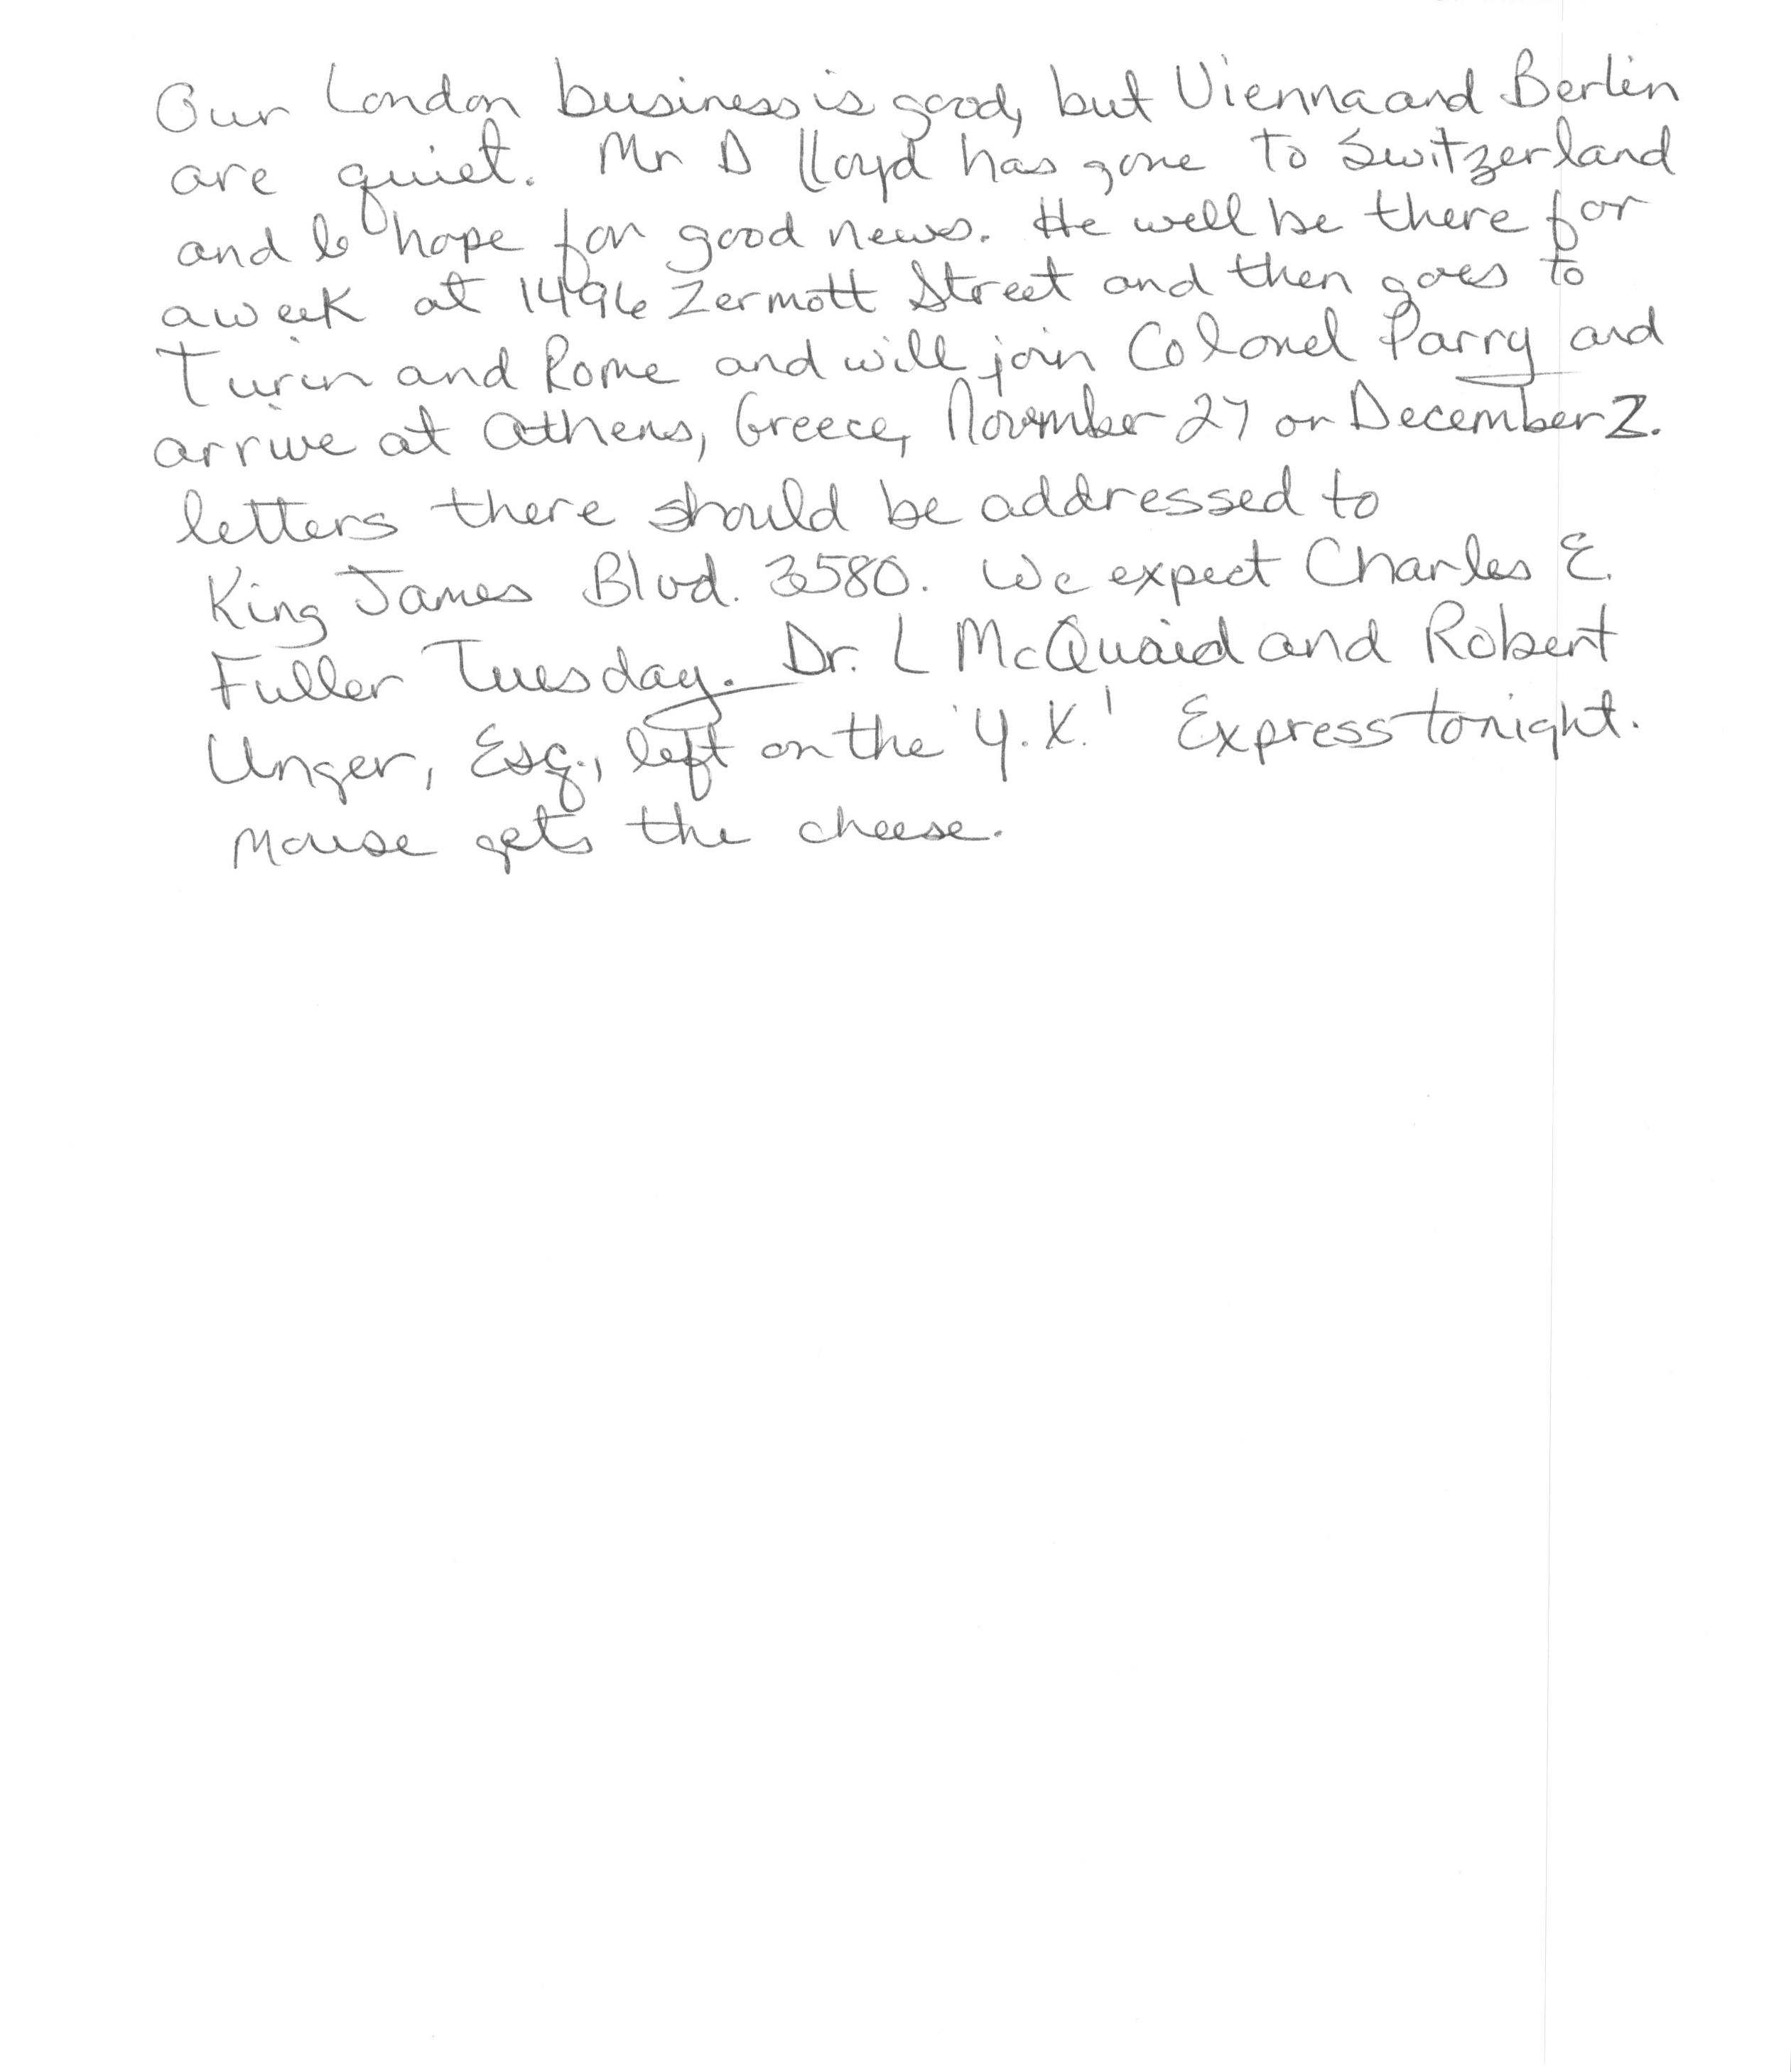 Our London business is good, but Vienna and Berlin
are quiet. Mr D Lloyd has gone to Switzerland
and hope for good news. He well be there for
a week at 1496 Zermott Street and then goes to
Turin and Rome and will join Colonel Parry and
arrive at Athens, Greece, November 27 or December 2.
letters there should be addressed to
King James Blvd. 3580. We expect Charles E.
Fuller Tuesday. Dr. L McQuaid and Robert
Unger, Esq., left on the 'Y.X.' Express tonight.
Mouse gets the cheese.